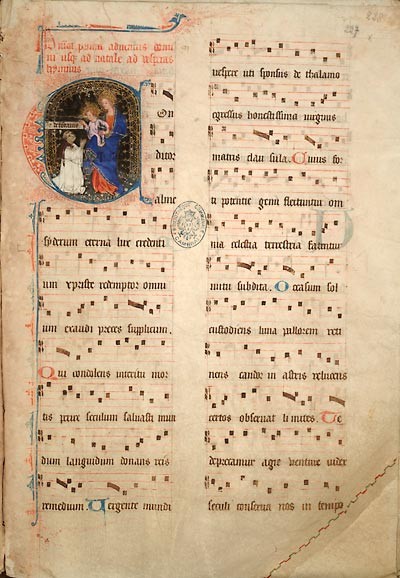 ni usq ad natale ad vesperas
hymnus
On
ditor
alme
syderum eterna lux credenti
um xpriste redemptor omni
um exaudi preces supplicum.
Qui condolens interitu mor
tis perire seculum salvasti mun
dum languidum donans reis
remedium. Vergente mundi
227
vespere uti sponsus de thalamo
egressus honestissima virginis
matris clau sula. Cuius for
ti potentie genu flectuntur om
nia celestia terrestria fatentur
nutu subdita. Occasum sol
custodiens luna pallorem reti
nens candor in astris relucens
certos observat limites. Te
deprecamur agie venture iudex
seculi conserva nos in tempo